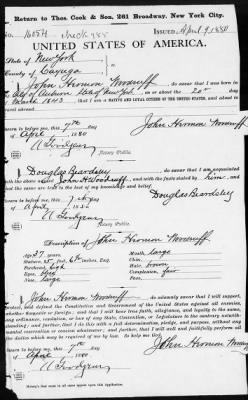 Return to Thos. Cook & Son, 261 Broadway, New York City.
No. 16054 check 985 Issued April 9, 1880
UNITED STATES OF AMERICA.
State of New York
County of Cayuga
I, John Hermon Woodruff, do swear that I was born in
the City of Auburn State of New York, on or about the 20th day
of March 1843, that I am a NATIVE AND LOYAL CITIZEN OF THE UNITED STATES, and about to
travel abroad.
Sworn to before me, this 7th day
of April 1880
John Hermon Woodruff
Notary Public.
I, Douglas Beardsley, do swear that I am acquainted
with the above named John H. Woodruff, and with the facts stated by him, and
are true to the best of my knowledge and belief.
Sworn to before me, this 7 day
of April
Douglas Beardsley
Notary Public.
Description of John Hermon Woodruff
Age: 37 years
Stature: 5 feet, inches, Eng.
Forehead, high
Eyes,
Nose, large
Mouth large
Chin
Hair, brown
Complexion, fair
Face,
I, John Hermon Woodruff, do solemnly swear that I will support,
protect and defend the Constitution and Government of the United States against all enemies,
whether domestic or foreign; and that I will bear true faith, allegiance and loyalty to the same,
any ordinance, resolution, or law of any State, Convention, or Legislature to the contrary notwith-
standing; and further, that I do this with a full determination, pledge, and purpose, without any
mental reservation or evasion whatsoever; and further, that I will well and faithfully perform all
the duties which may be required of me by law. So help me God.
Sworn to before me, this 7 day
of April 1880
John Hermon Woodruff
Notary Public.
Notary's Seal must in all cases appear upon this Application.